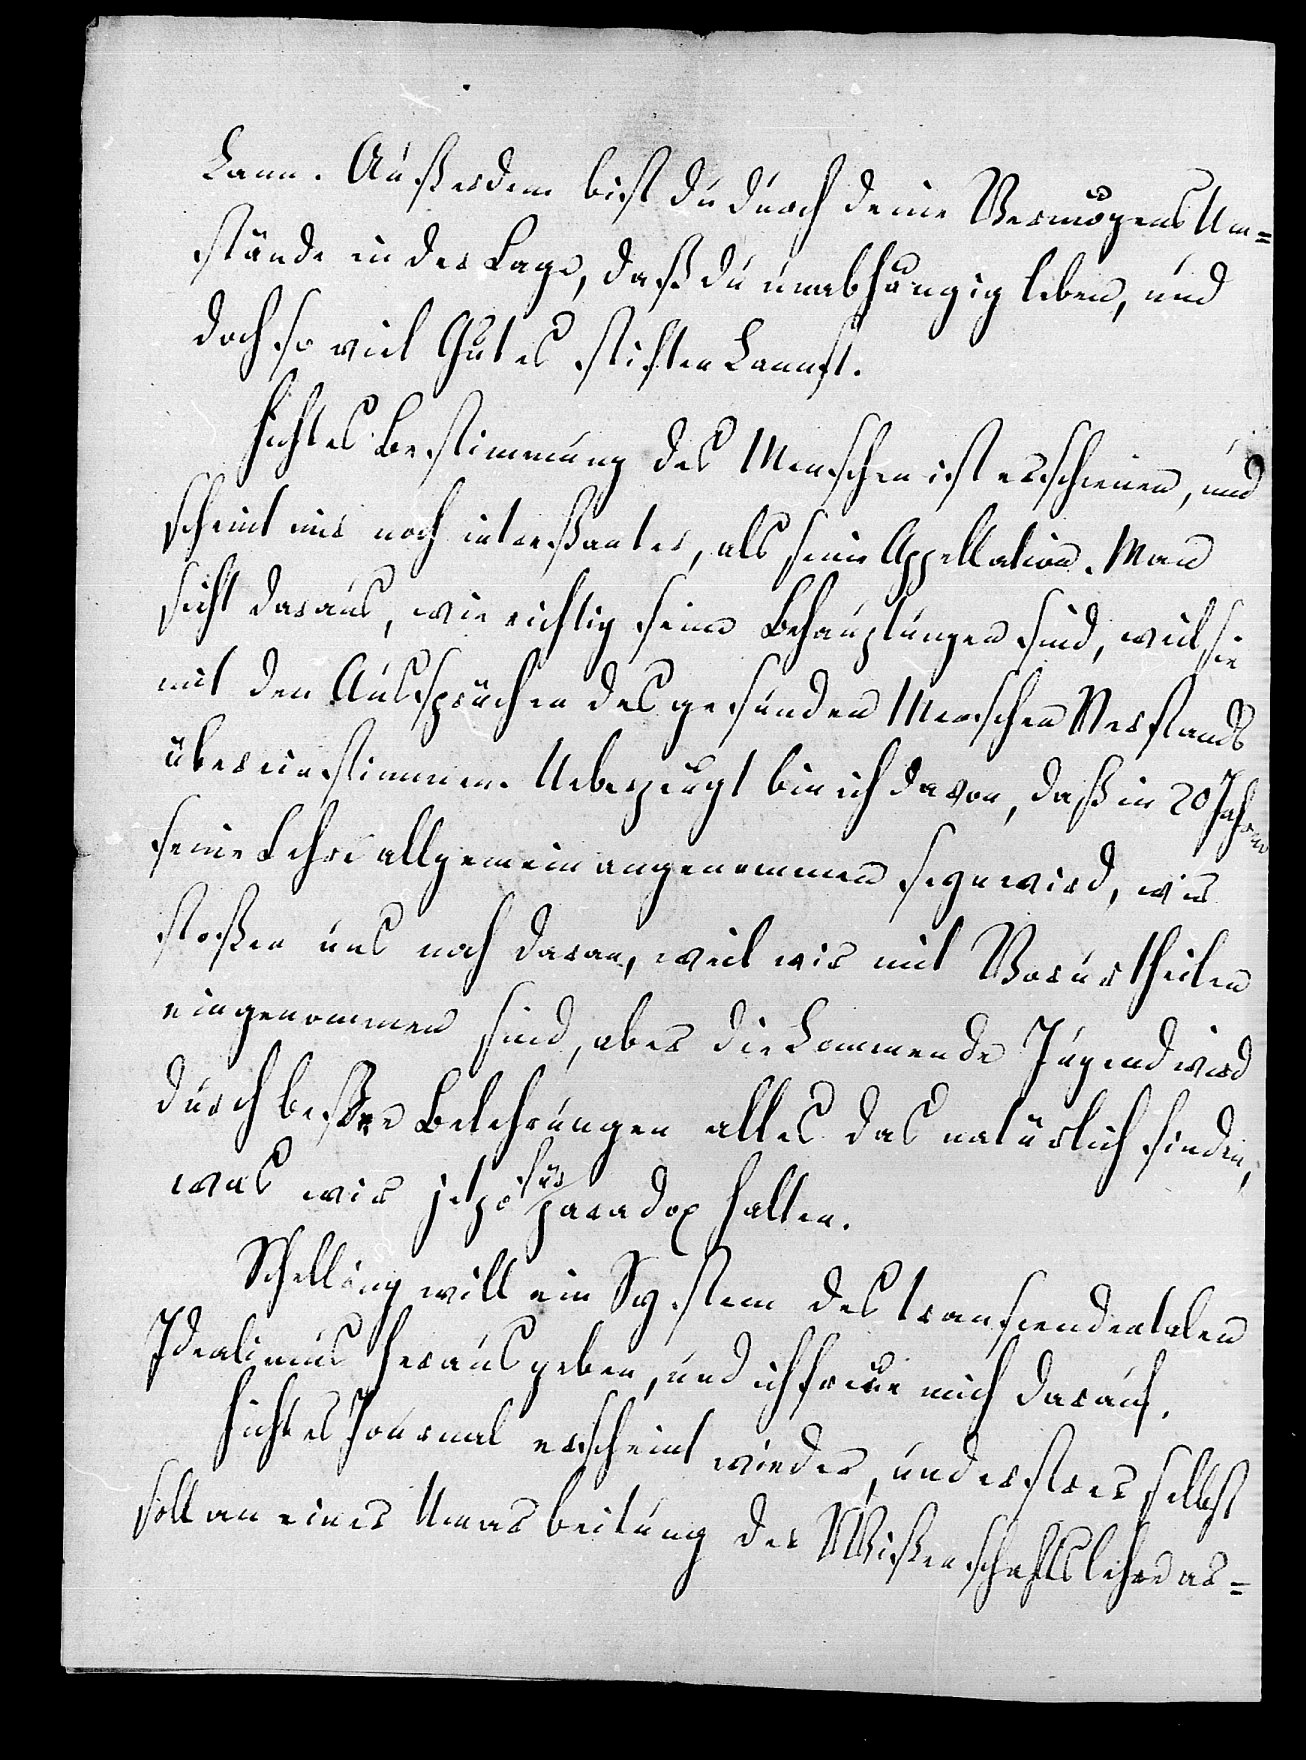 kann. Außerdem bist du durch deine Vermögens Um=
stände in der Lage, daß du unabhängig leben, und
doch so viel Gutes stiften kannst.
Fichtes Bestimmung des Menschen ist erschienen, und
scheint mir noch intereßanter, als seine Appellation. Man
sieht daraus, wie richtig seine Behauptungen sind, weil sie
mit den Aussprüchen des gesunden Menschen Verstands
übereinstimmen. Ueberzeugt bin ich davon, daß in 20 Jahren
seine Lehre allgemein angenommen seyn wird, wir
stoßen uns noch daran, weil wir mit Vorurtheilen
eingenommen sind, aber die kommende Jugend wird
durch beßre Belehrungen alles das natürlich finden,
was wir jetzo für paradox halten.
Schelling will ein System des transcendentalen
Idealimus herausgeben, und ich freue mich darauf.
Fichtes Journal erscheint wieder, und ersterer selbst
soll an einer Umarbeitung der Wißenschaftslehre ar=